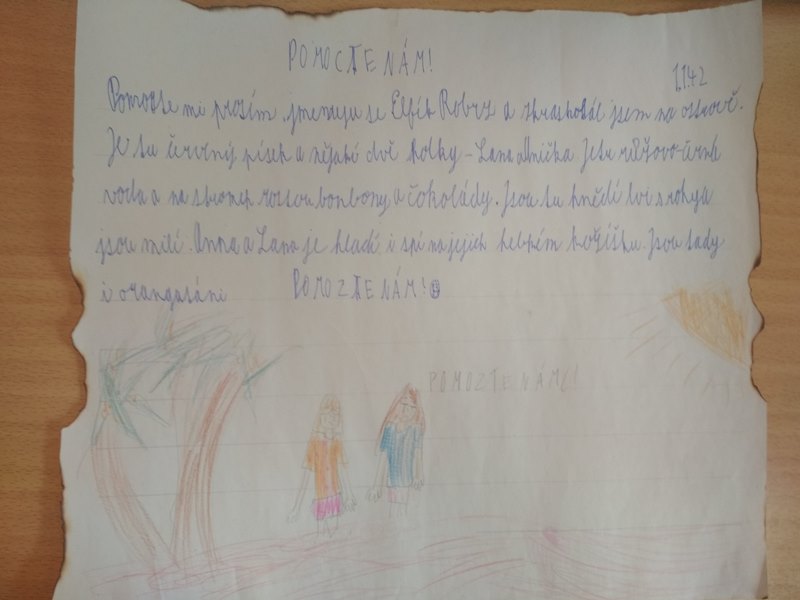 POMOCTE NÁM!
1.1.42
Pomozte mi prosím jmenuju se Elfík Robry a ztroskotal jsem na ostrově.
Je tu červený písek a nějaké dvě holky - Lana a Anička. Je tu růžovo-černá
voda a na stromek rostou bonbony a čokolády. Jsou tu hnědí lvi s rohy a
jsou milí. Anna a Lana je hladí i spí na jejich hebkém kožíšku. Jsou tady
i orangutáni POMOZTE NÁM!
POMOZTE NÁM!!